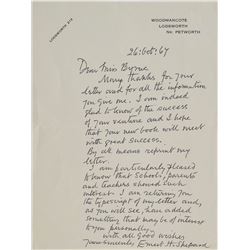 WOODMANCOTE
LODSWORTH
Nr. PETWORTH
LODSWORTH 313
26: Oct: 67
Dear Miss Byrne
Many thanks for your
letter and for all the information
you give me. I am indeed
glad to know of the success
of your venture and I hope
that your new book will meet
with great success.
By all means reprint my
letter.
I am particularly pleased
to know that schools, parents
and teachers showed such
interest. I am returning you
the typescript of my letter and,
as you will see, have added
something that may be of interest
to you personally.
with all good wishes
Yours sincerely Ernest H. Shepard